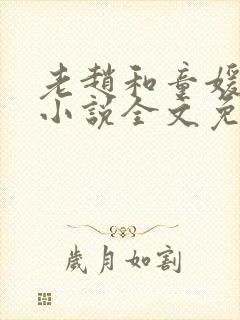 老趙和童媛
小說全文免
歲月如割